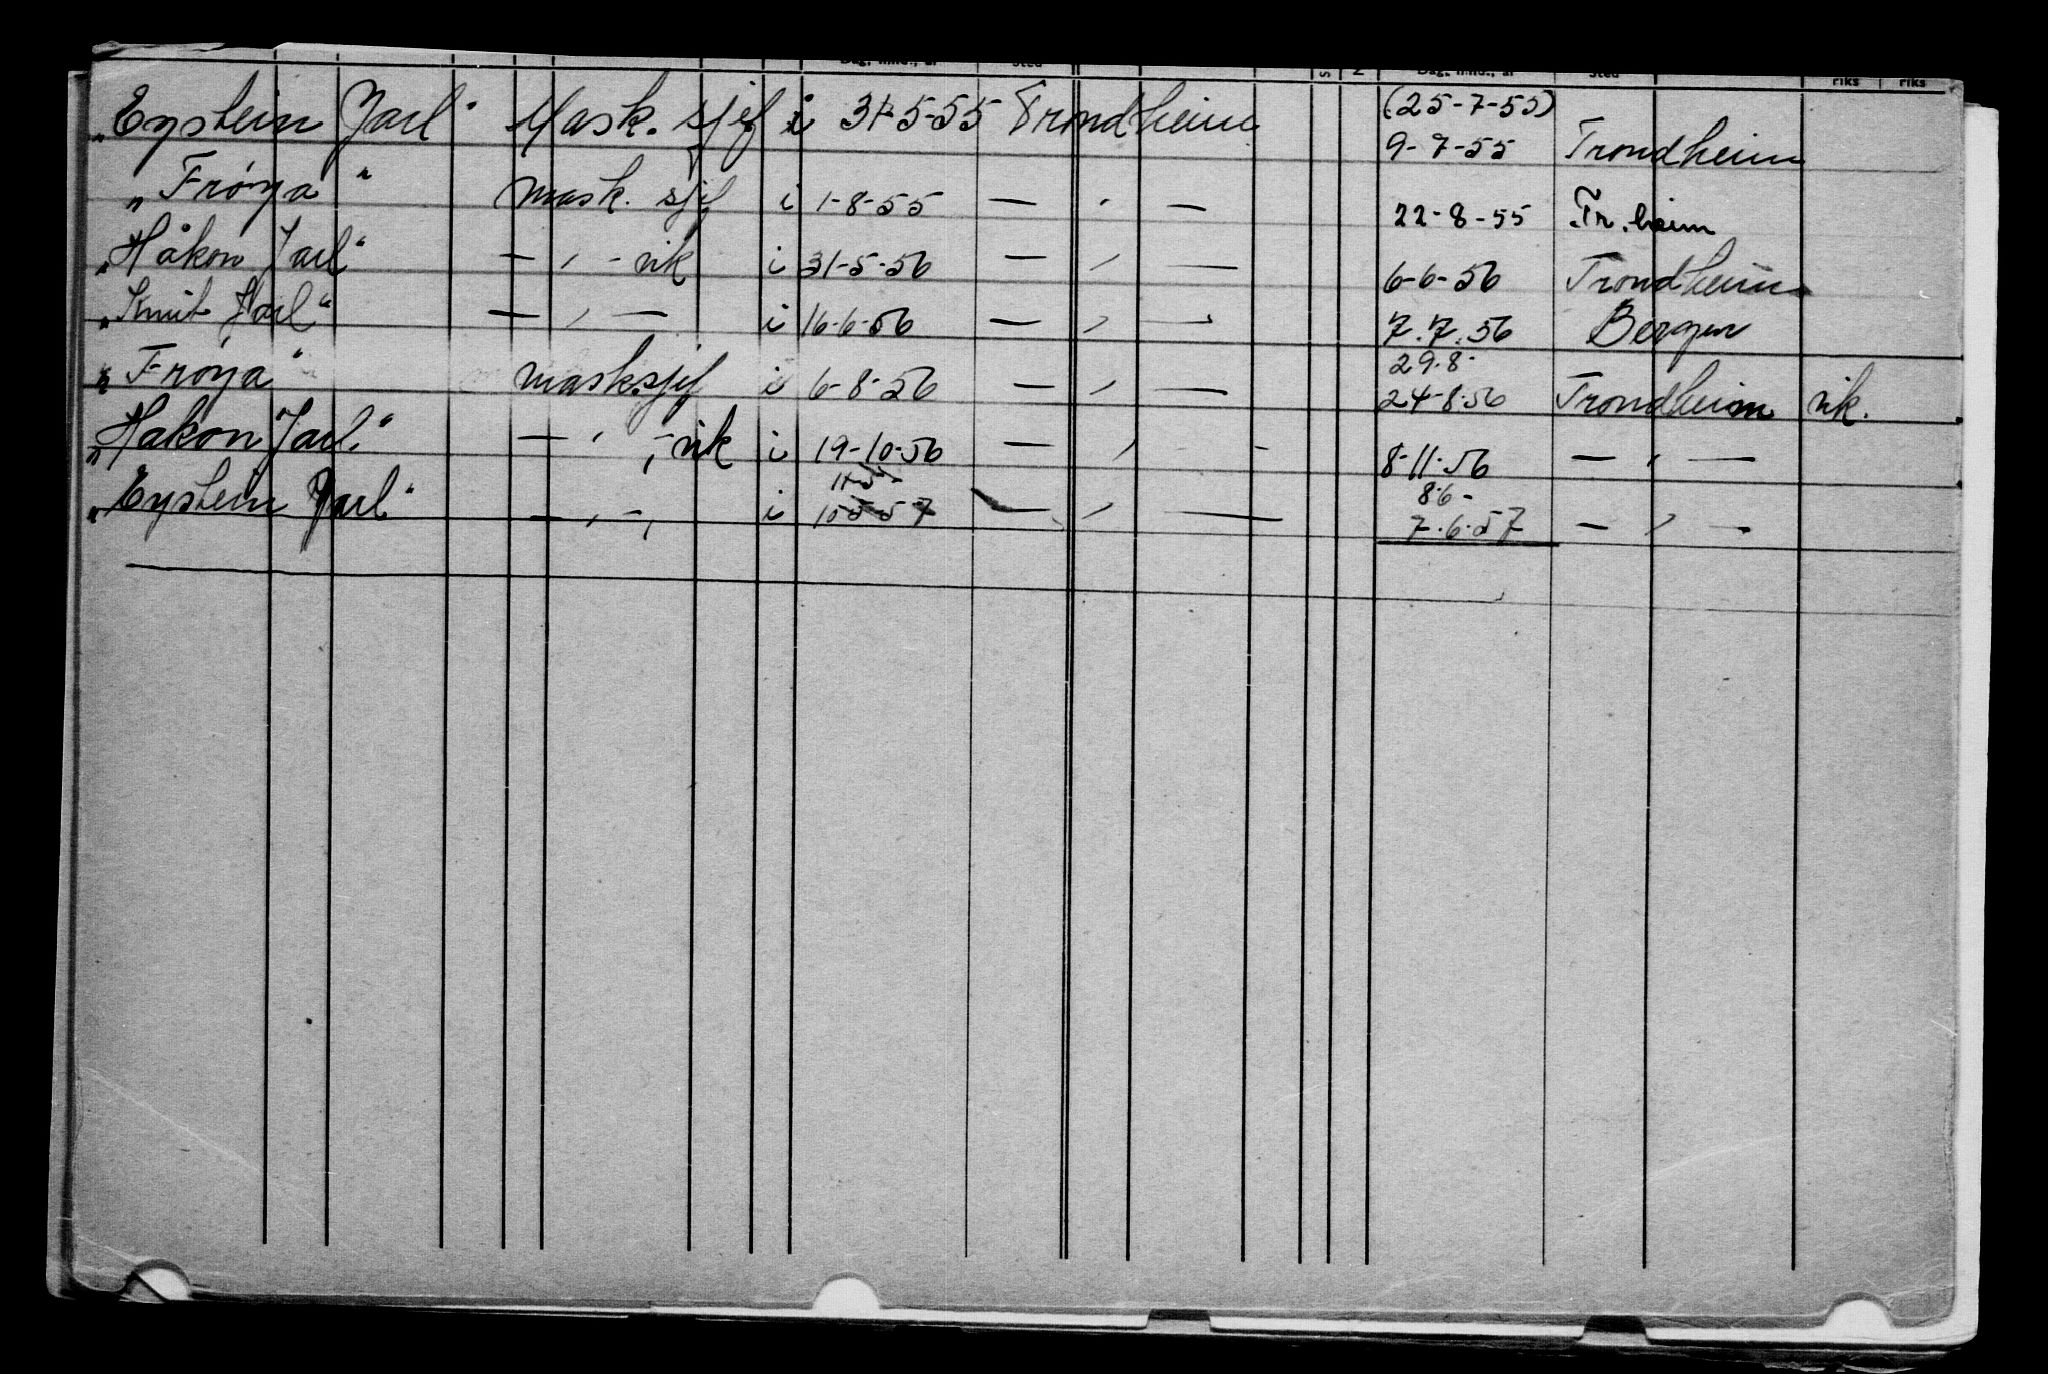 Dag, mnd., år Sted S N Dag, mnd., år Sted riks riks
„Eystein Jarl" Mask. sjef i 31-5-55 Trondheim (25-7-55)
9-7-55 Trondheim
„Frøya" mask. sjef i 1-8-55 — " — 22-8-55 Tr.heim
„Håkon Jarl" — " — vik i 31-5-56 — " — 6-6-56 Trondheim
„Knut Jarl" — " — i 16-6-56 — " — 7.7.56 Bergen
29.8-
„Frøya" masksjef i 6-8-56 — " — 24-8-56 Trondheim vik.
„Håkon Jarl" — " — vik i 19-10-56 — " — 8-11-56 — " —
8-6-
„Eystein Jarl" — " — i 10-5-57 — " — 7.6.57 — " —